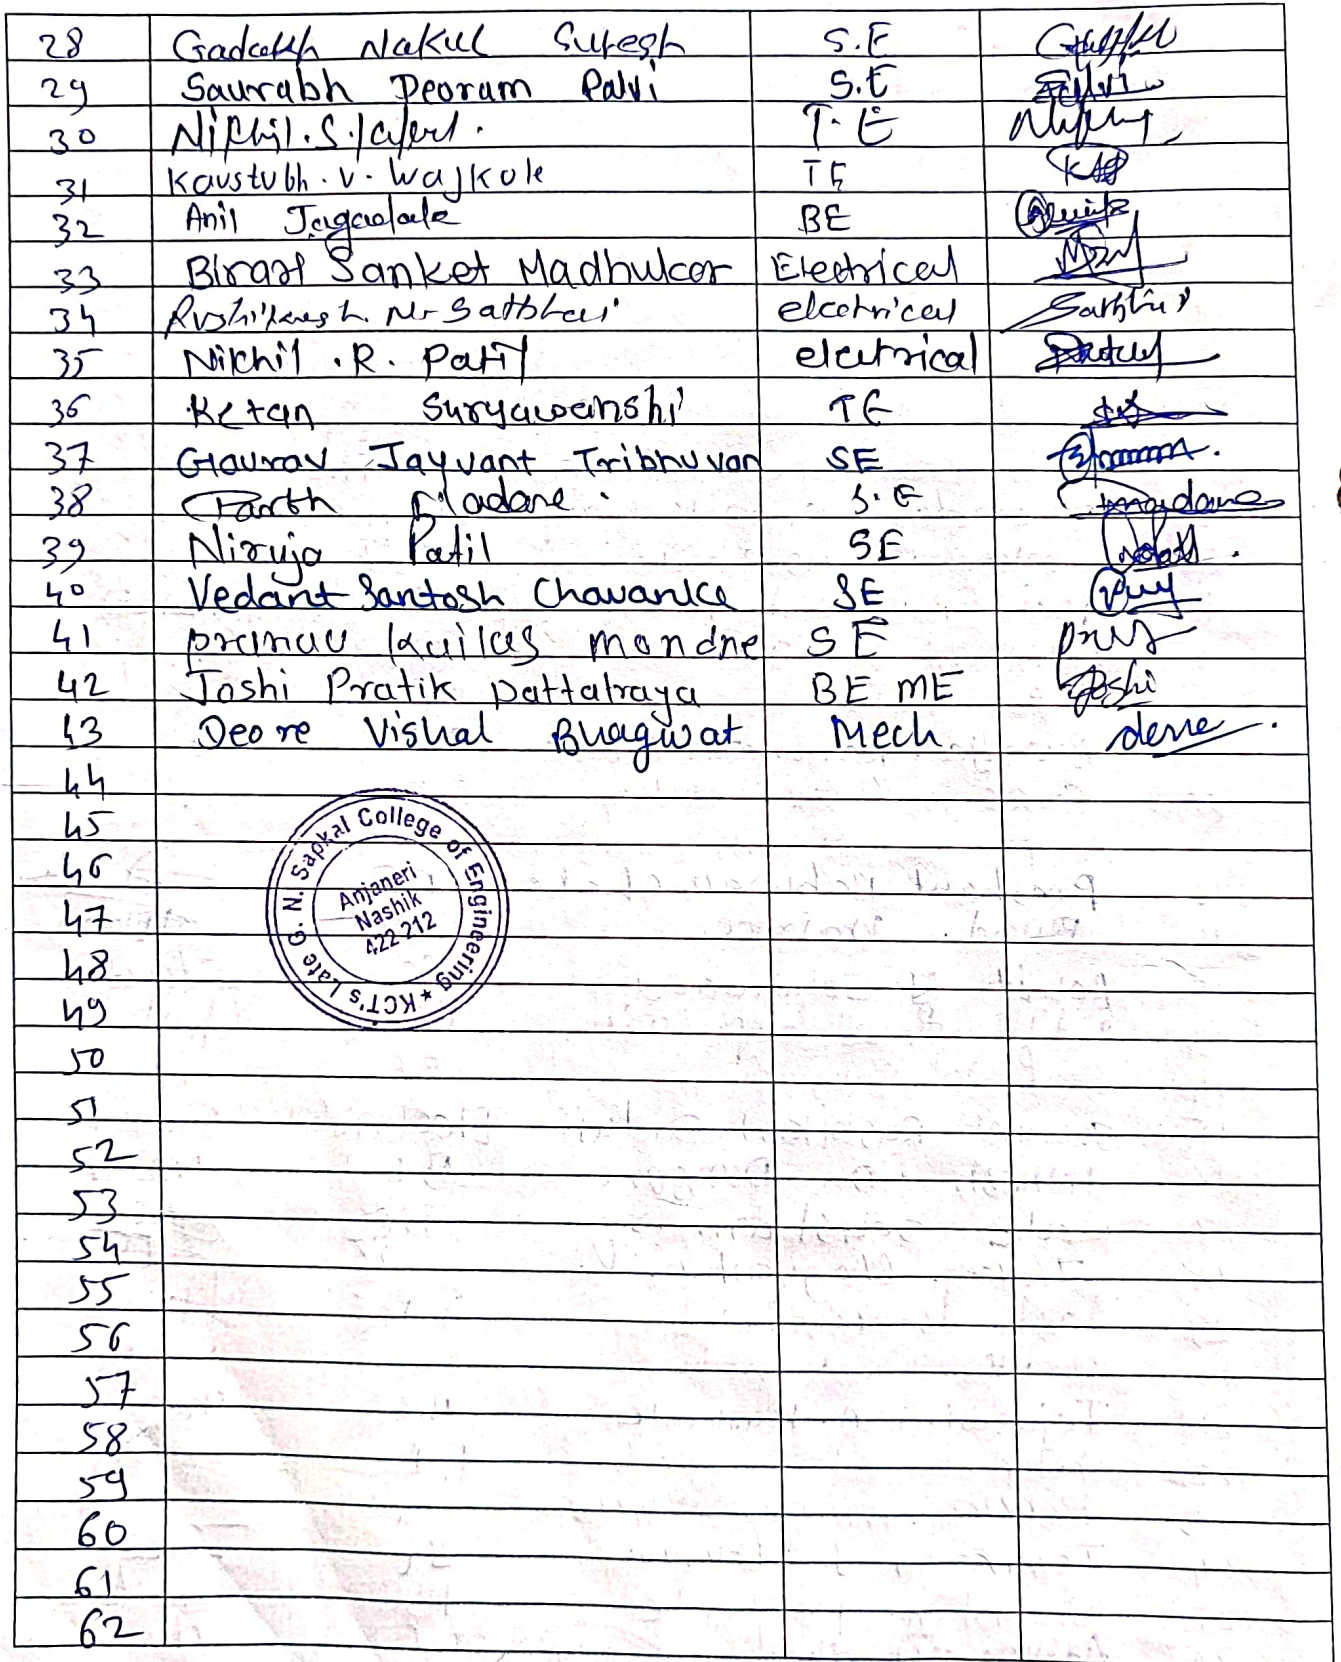 28 Gadakh Nakul Suresh S.E
29 Saurabh Deoram Palvi S.E Palvi
30 Nikhil.S. T.E
31 Kaustubh.v.Wajkule TE
32 Anil Jagadale BE
33 Birari Sanket Madhukar Electrical
34 Rushikesh. M. Satbhai elcetrical Satbhai
35 Nikhil .R. Patil electrical
36 Ketan Suryawanshi TE
37 Gaurav Jayvant Tribhuvan SE
38 Parth Madane. S.E madane
39 Niruja Patil SE
40 Vedant Santosh Chavanke SE
41 pranav kailas mondhe SE
42 Joshi Pratik Dattatraya BE ME Joshi
43 Deore Vishal Bhagwat Mech deore
44
45
46
47
48
49
50
51
52
53
54
55
56
57
58
59
60
61
62
KCT's Late G. N. Sapkal College of Engineering *
Anjaneri
Nashik
422 212